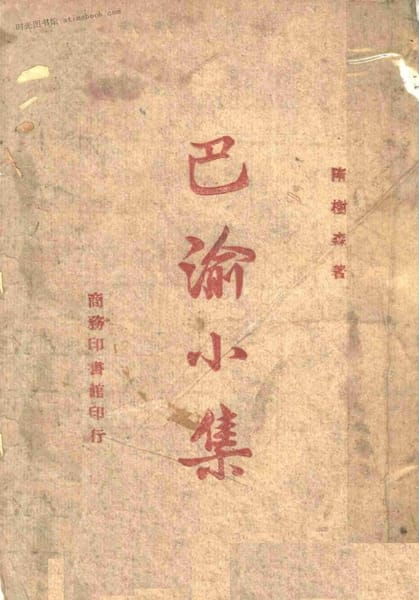 时光图书馆 atimebook.com
隋樹森著
巴渝小集
商務印書館印行